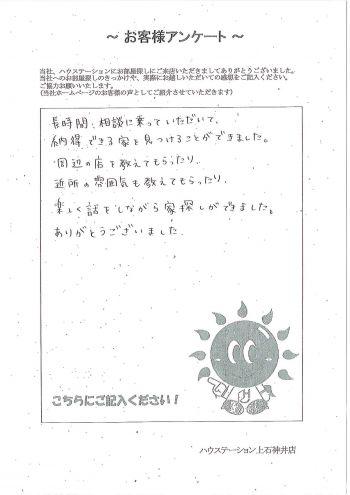 ～ お客様アンケート ～
当社、ハウステーションにお部屋探しにご来店いただきましてありがとうございました。
当社へのお部屋探しのきっかけや、実際にお越しいただいての感想をご記入ください。
ご協力お願いいたします。
(当社ホームページのお客様の声としてご紹介させていただきます)
長時間、相談に乗っていただいて、
納得できる家を見つけることができました。
周辺の店を教えてもらったり、
近所の雰囲気も教えてもらったり、
楽しく話をしながら家探しができました。
ありがとうございました。
こちらにご記入ください！
ハウステーション上石神井店